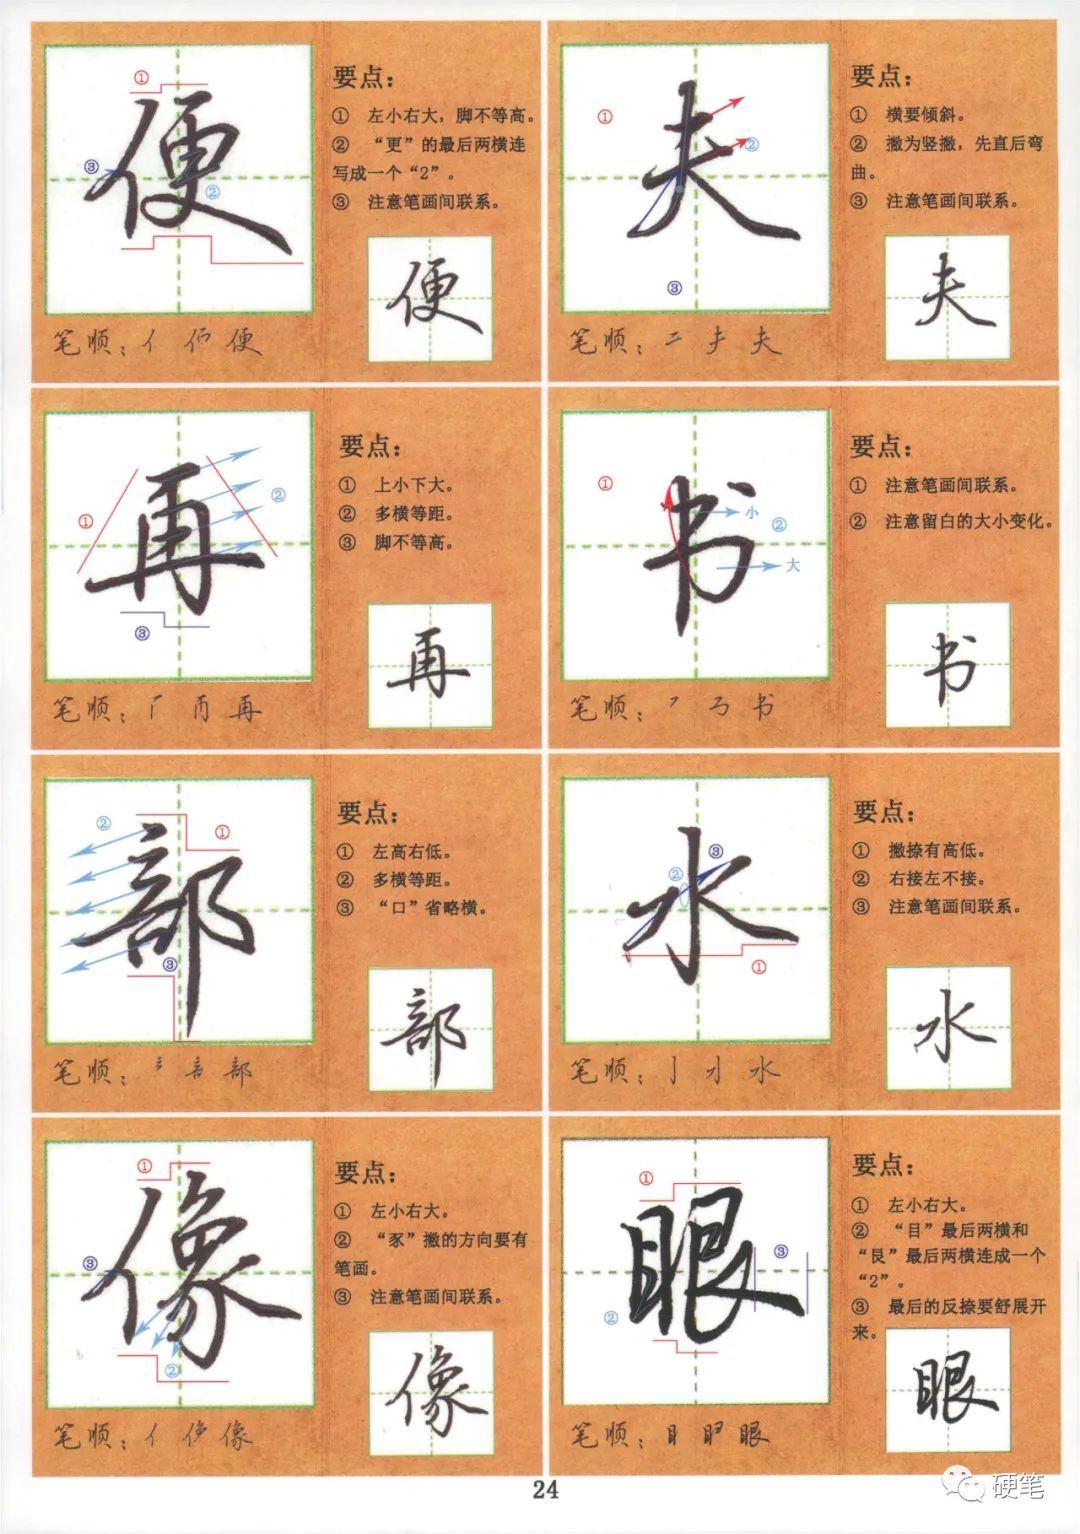 便
①
②
③
要点：
① 左小右大，脚不等高。
② “更”的最后两横连
写成一个“2”。
③ 注意笔画间联系。
便
笔顺：亻 佰 便
夫
①
②
③
要点：
① 横要倾斜。
② 撇为竖撇，先直后弯
曲。
③ 注意笔画间联系。
夫
笔顺：二 夫
再
①
②
③
要点：
① 上小下大。
② 多横等距。
③ 脚不等高。
再
笔顺：再
书
①
小
②
大
要点：
① 注意笔画间联系。
② 注意留白的大小变化。
书
笔顺：书
部
②
①
③
要点：
① 左高右低。
② 多横等距。
③ “口”省略横。
部
笔顺：部
水
②
③
①
要点：
① 撇捺有高低。
② 右接左不接。
③ 注意笔画间联系。
水
笔顺：水
像
①
③
②
要点：
① 左小右大。
② “豕”撇的方向要有
笔画。
③ 注意笔画间联系。
像
笔顺：亻 像
眼
①
③
②
要点：
① 左小右大。
② “目”最后两横和
“艮”最后两横连成一个
“2”。
③ 最后的反捺要舒展开
来。
眼
笔顺：目 眼
24
硬笔